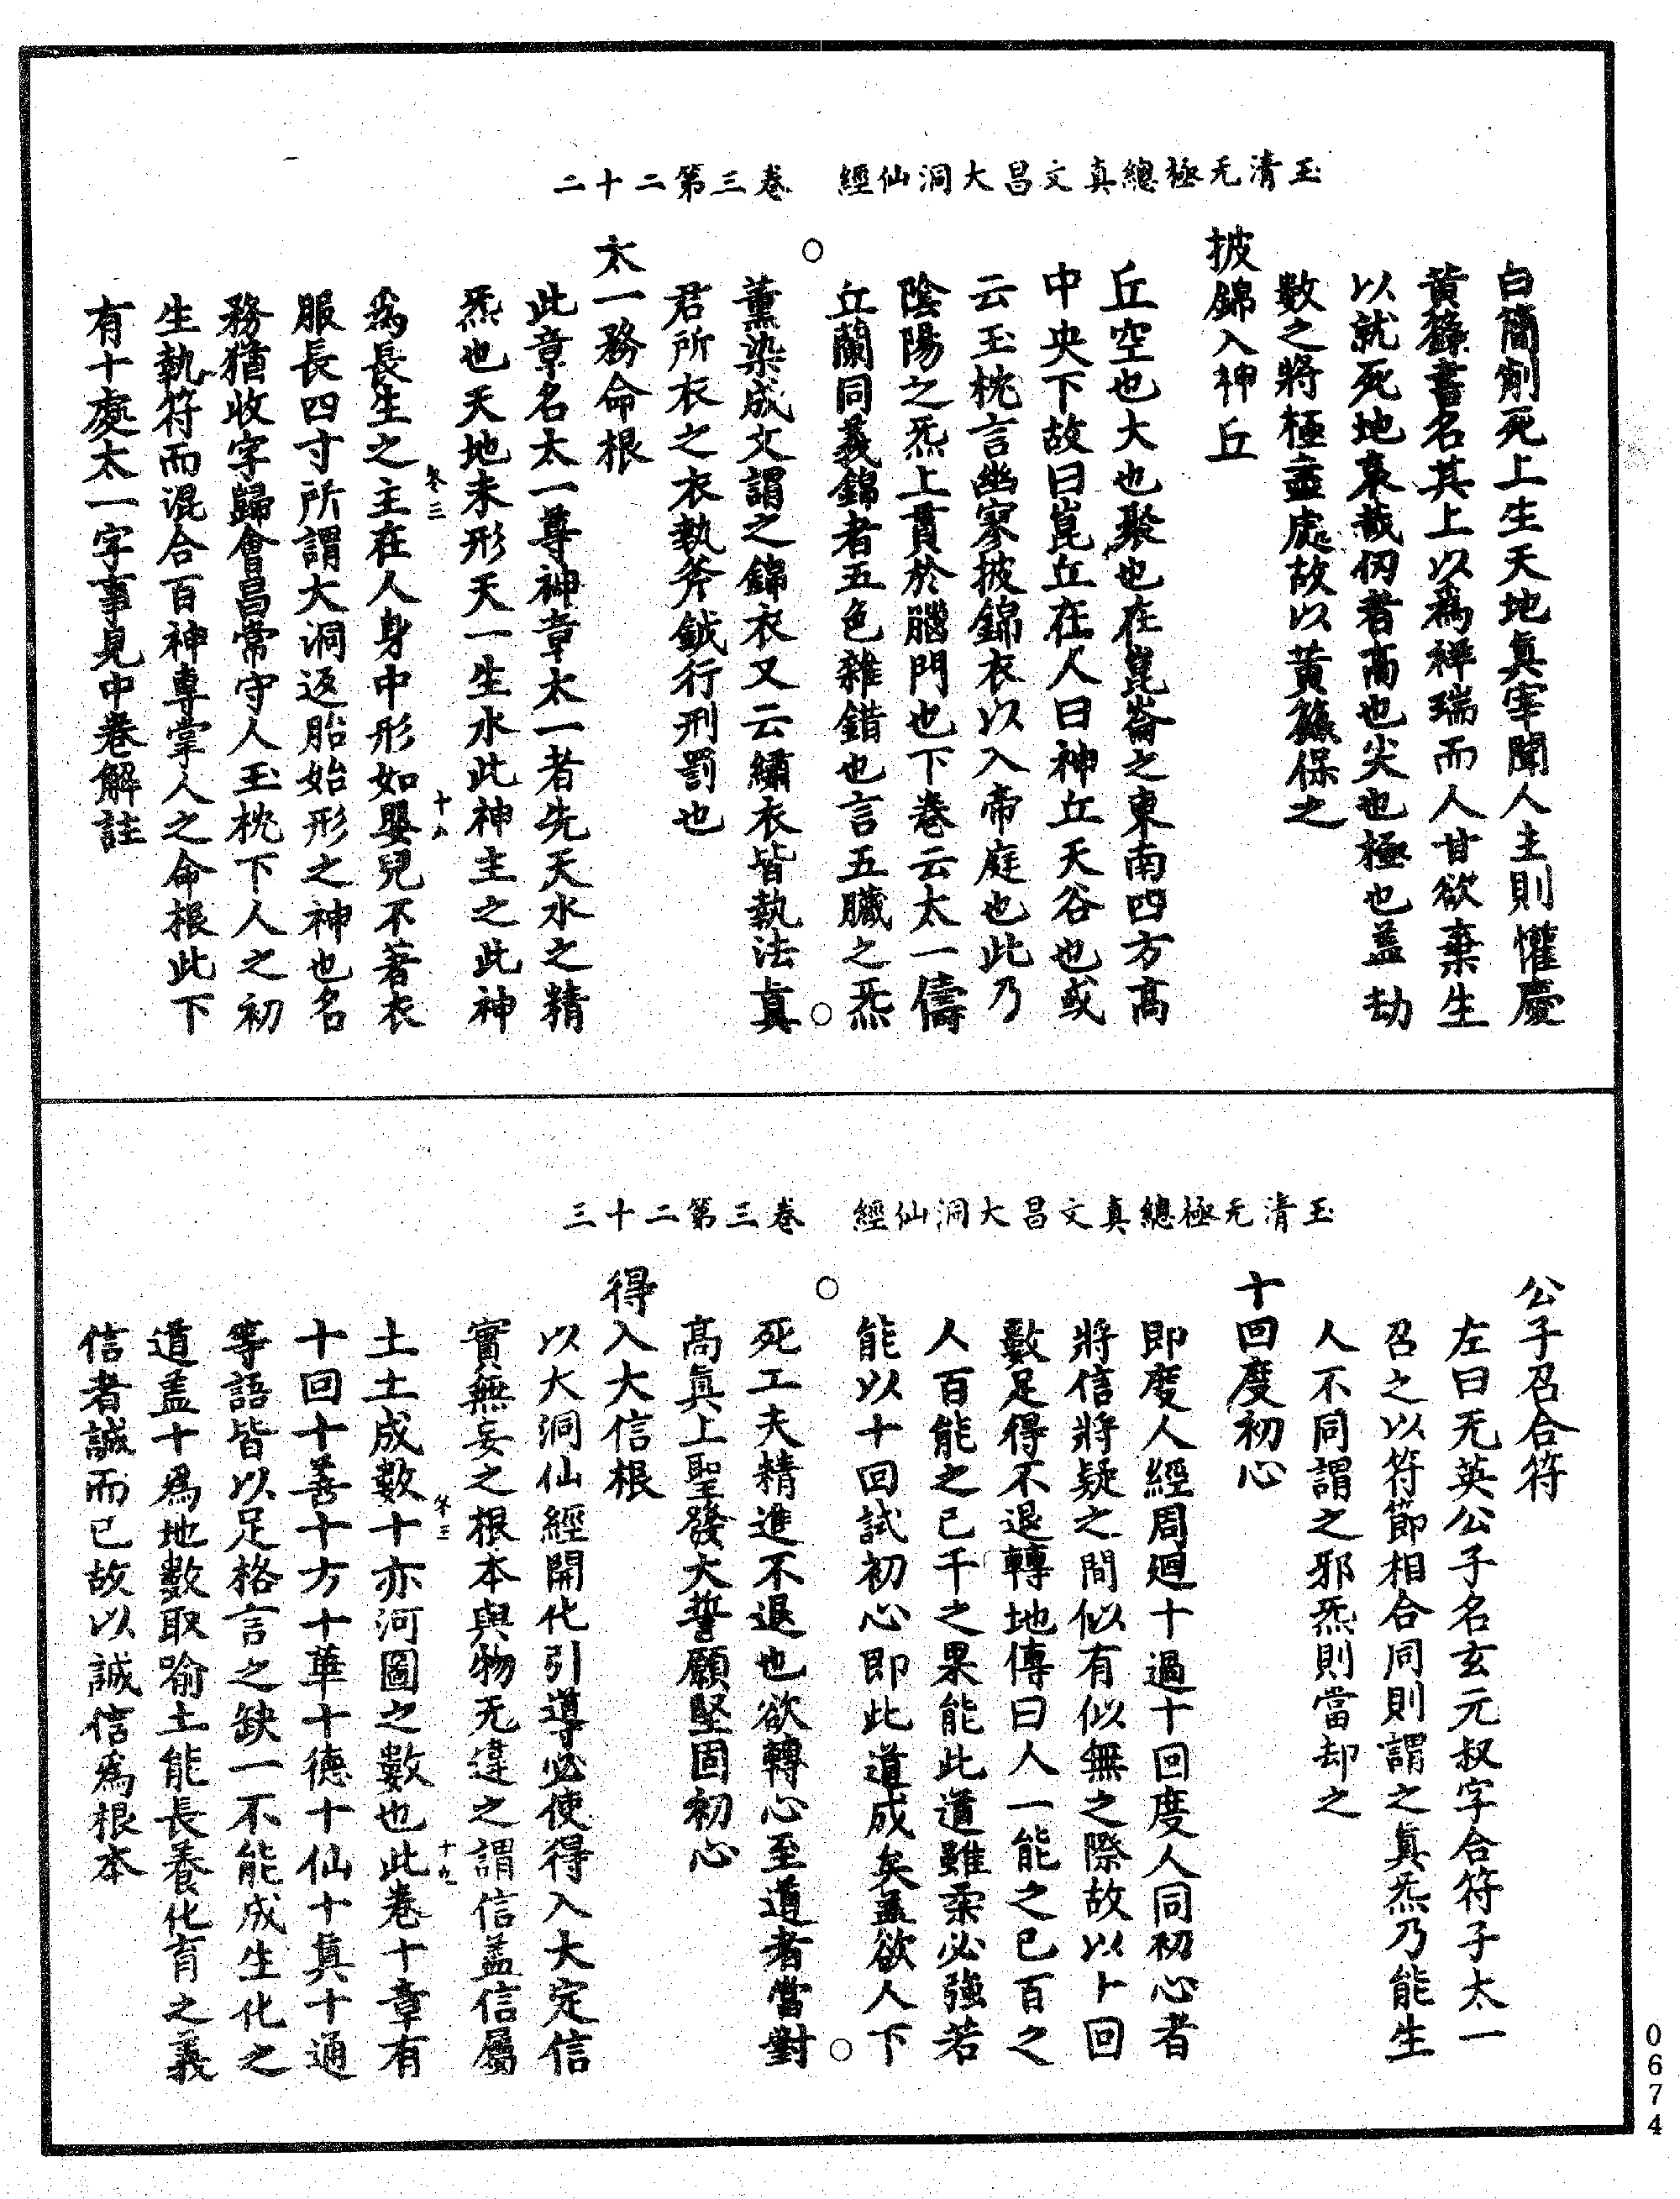 玉清无極總真文昌大洞仙經　卷三第二十二
白簡削死上生天地真宰聞人主則懽慶
黃籙書名其上以為祥瑞而人甘欲棄生
以就死地哀哉仞者高也尖也極也蓋劫
數之將極盡處故以黃籙保之
披錦入神丘
丘空也大也聚也在崑崙之東南四方高
中央下故曰崑丘在人曰神丘天谷也或
云玉枕言幽寥披錦衣以入帝庭也此乃
陰陽之炁上貫於腦門也下卷云太一儔
丘蘭同義錦者五色雜錯也言五臟之炁
薰染成文謂之錦衣又云繡衣皆執法真
君所衣之衣執斧鉞行刑罰也
太一務命根
此章名太一尊神章太一者先天水之精
炁也天地未形天一生水此神主之此神
為長生之主在人身中形如嬰兒不著衣
服長四寸所謂大洞返胎始形之神也名
務猶收字歸會昌常守人玉枕下人之初
生執符而混合百神專掌人之命根此下
有十處太一字事見中卷解註
玉清无極總真文昌大洞仙經　卷三第二十三
公子召合符
左曰无英公子名玄元叔字合符子太一
召之以符節相合同則謂之真炁乃能生
人不同謂之邪炁則當却之
十回度初心
即度人經周廻十過十回度人同初心者
將信將疑之間似有似無之際故以十回
數足得不退轉地傳曰人一能之已百之
人百能之已千之果能此道雖柔必強若
能以十回試初心即此道成矣蓋欲人下
死工夫精進不退也欲轉心至道者當對
高真上聖發大誓願堅固初心
得入大信根
以大洞仙經開化引導必使得入大定信
實無妄之根本與物无違之謂信蓋信屬
土土成數十亦河圖之數也此卷十章有
十回十善十方十華十德十仙十真十通
等語皆以足格言之缺一不能成生化之
道蓋十為地數取喻土能長養化育之義
信者誠而已故以誠信為根本
0674